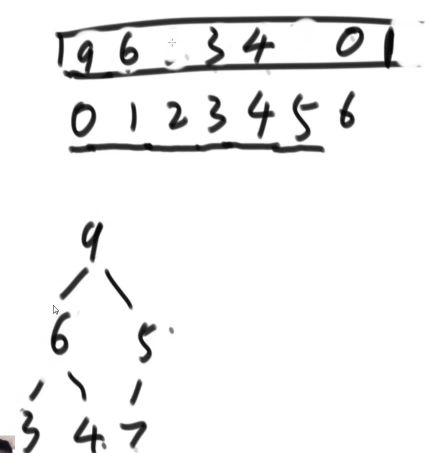 9 6 3 4 0
0 1 2 3 4 5 6
9
6 5
3 4 7